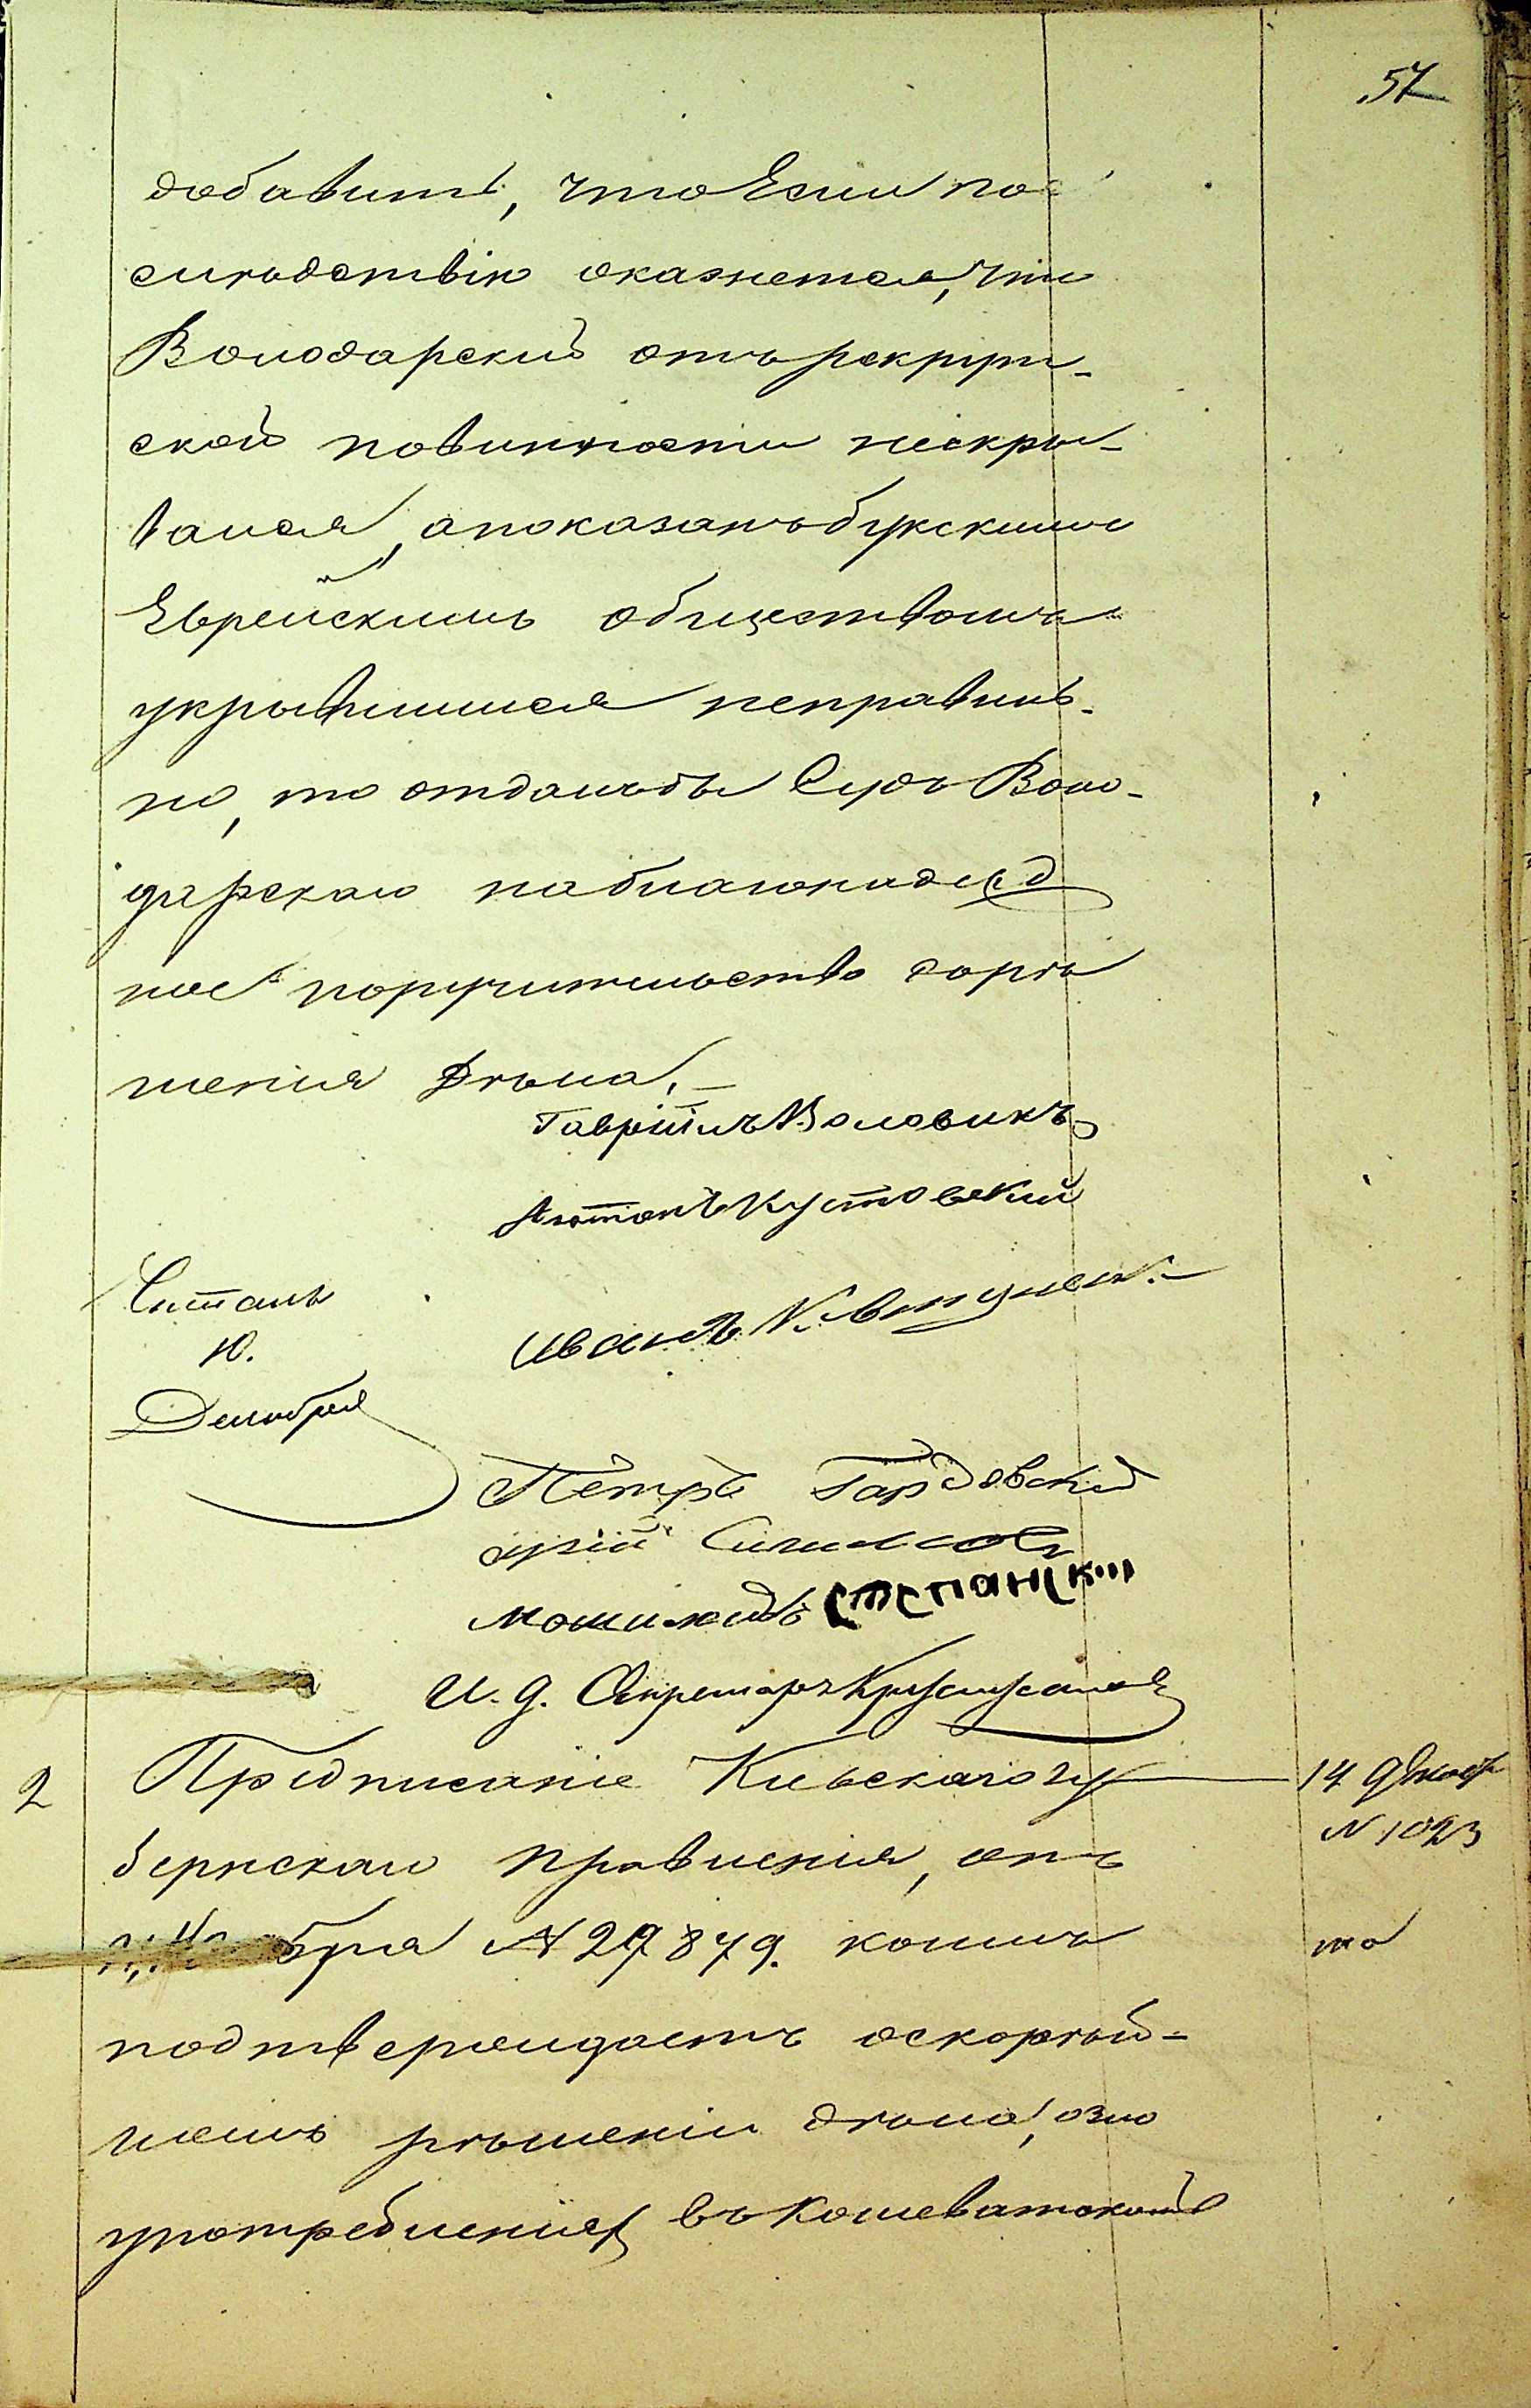 57
добавить, что Если по
слѣдствію окажется, что
Володарскій отъ рекрут-
ской повинности нескры-
вался, а показанъ букскимъ
Еврейскимъ обществомъ
укрывшимся неправиль-
но, то отдалъ бы Судъ Воло-
дарскаго на благонадеж
ное поручительство дорѣ
шенія Дѣла.—
Гавріилъ Воловикъ
Антонъ Кустовскій
Иванъ
Читалъ
10.
Декабря
Петръ Гардовскій
мошко жидъ Степанск
И. д. Секретаря
2 Предписаніе Кіевскаго гу 14 Декабр
бернскаго Правленія, отъ N 1023
бря N 29879. коимъ то
подтверждаетъ оскорѣй-
шемъ рѣшеніи дѣла, озло
употребленіяхъ въ Кошеватской